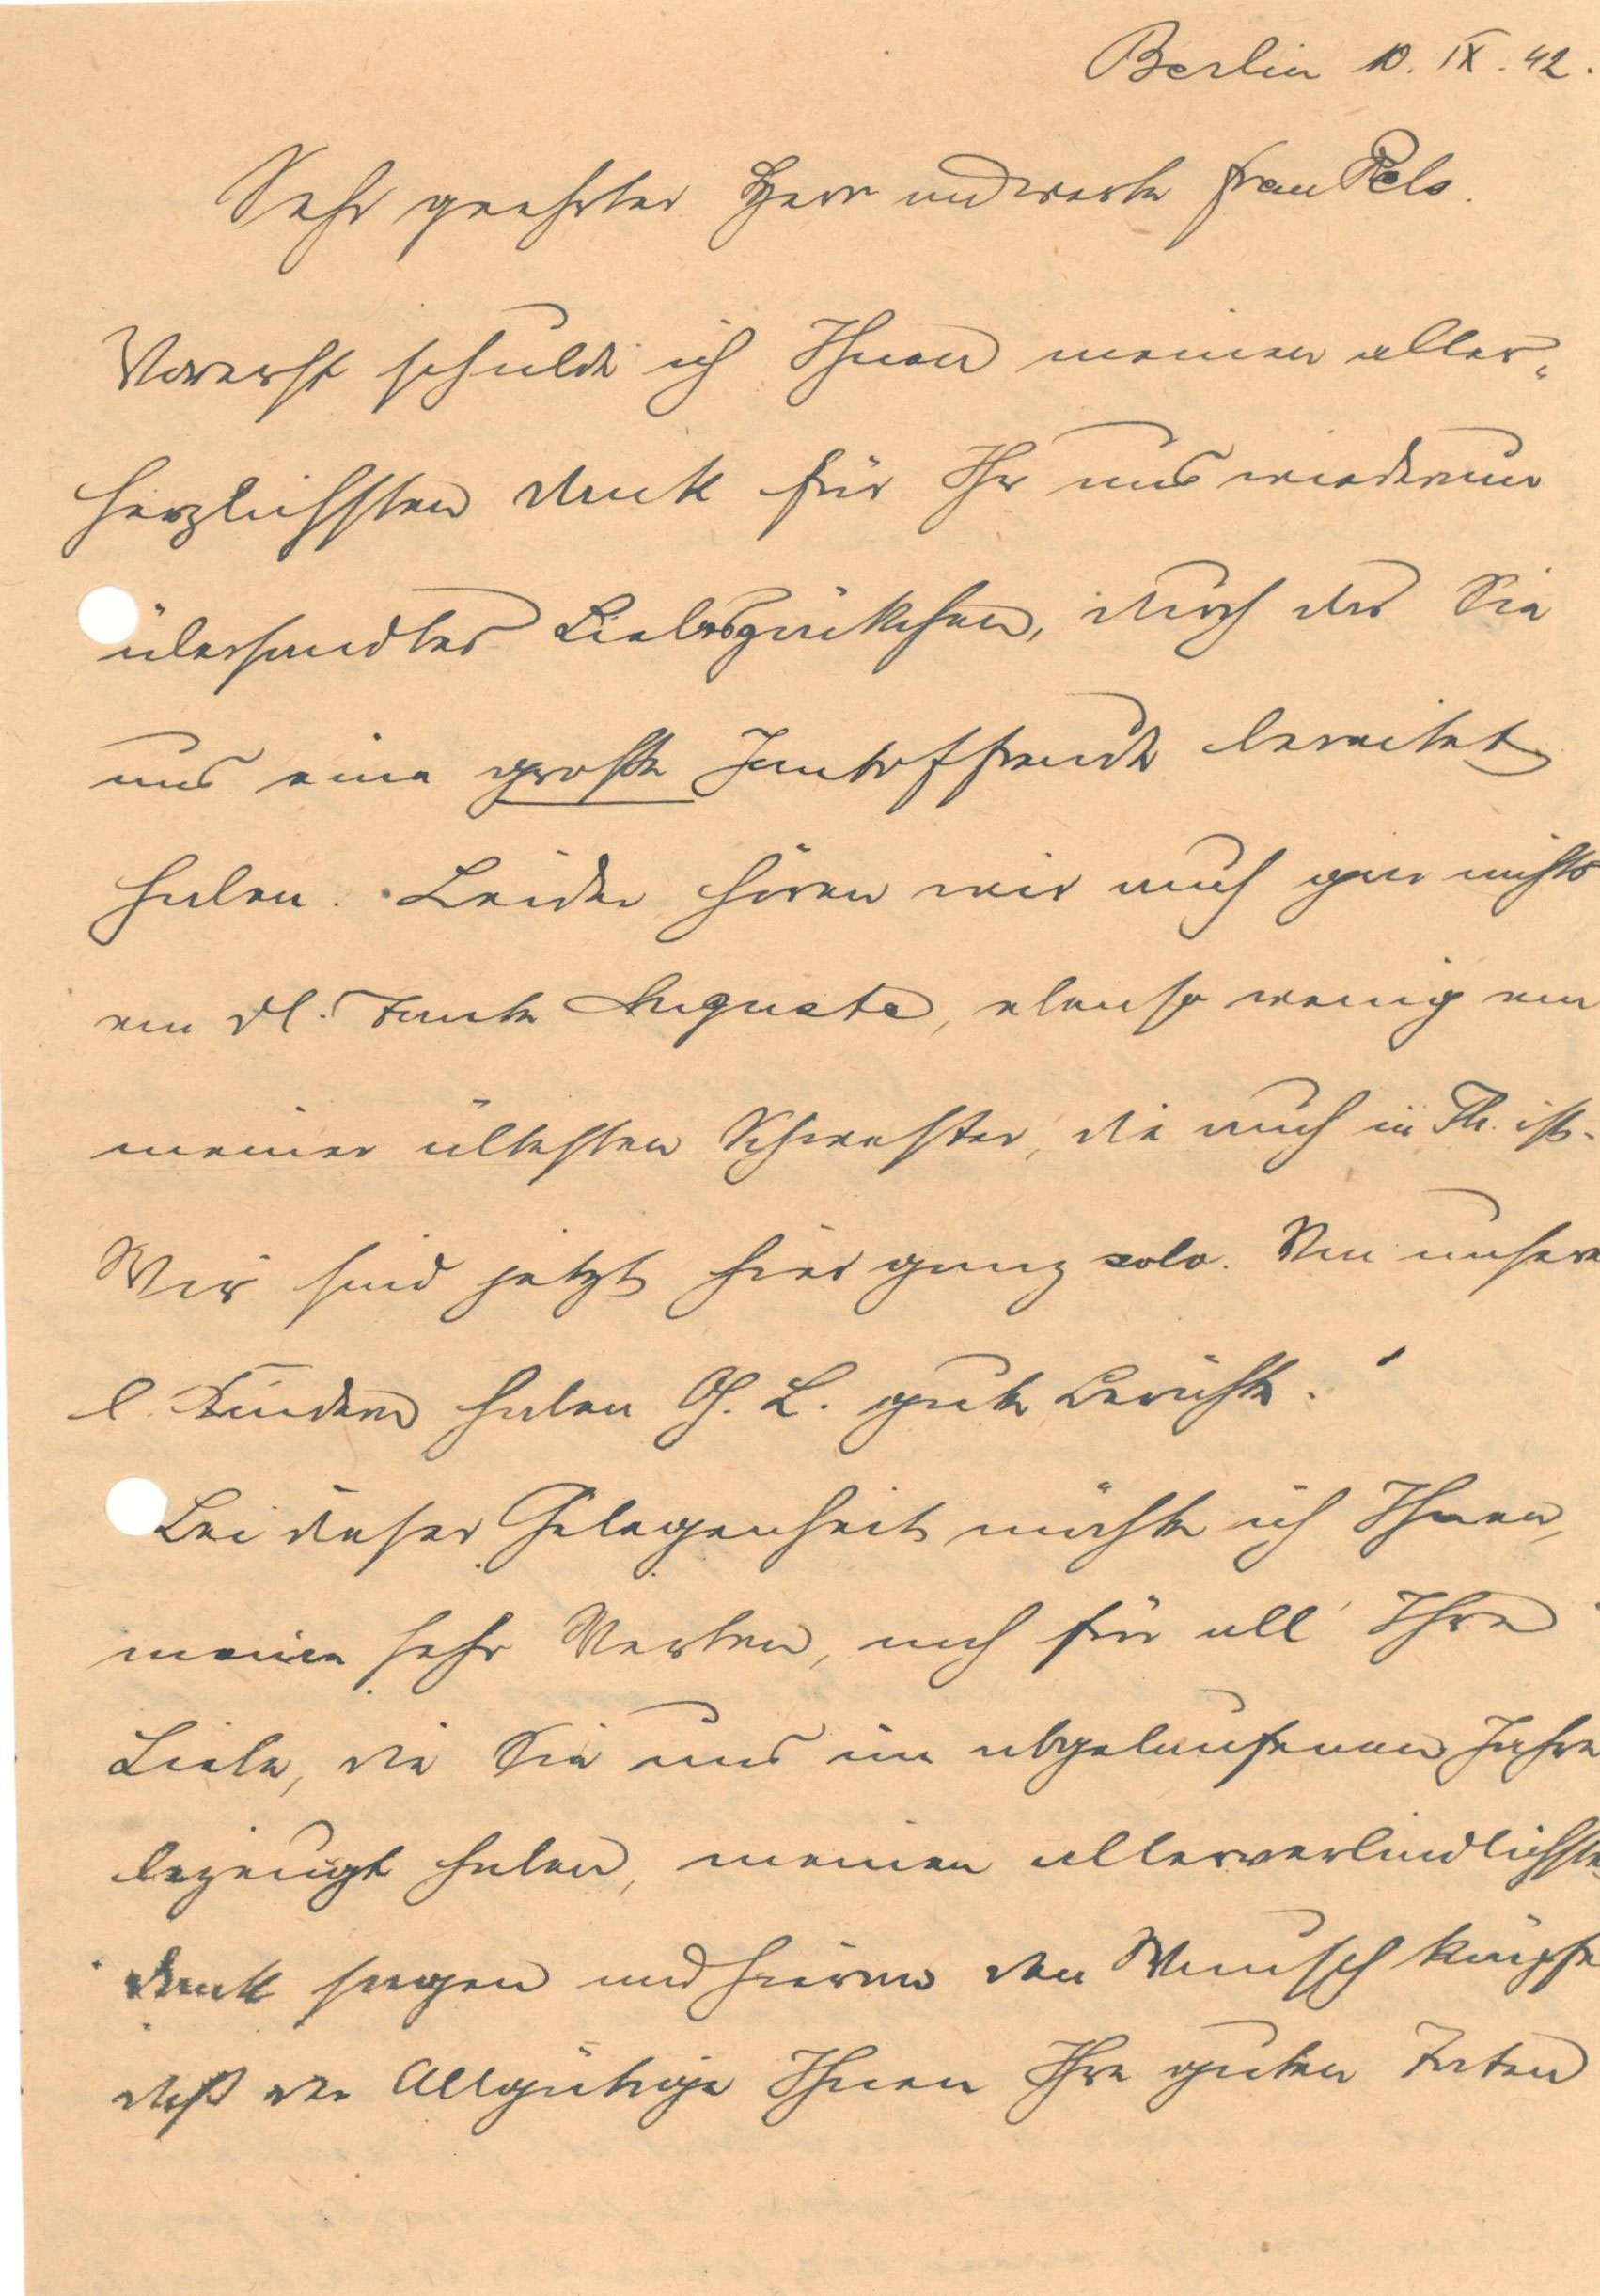 Berlin 10. IX. 42.
Sehr geehrter Herr und werte Frau Pels.
Vorerst schulde ich Ihnen meinen aller-
herzlichsten Dank für Ihr uns wiederum
übersandtes Liebespäckchen, durch das Sie
uns eine große Jontoffreude bereitet
haben. Leider hören wir auch gar nichts
von dl. Tante Auguste, ebenso wenig von
meiner ältesten Schwester, die auch in Th. ist.
Wir sind jetzt hier ganz solo. Von unsern
l. Kindern haben G. L. gute Berichte.
Bei dieser Gelegenheit möchte ich Ihnen,
meine sehr Werten, noch für all' Ihre
Liebe, die Sie uns im abgelaufenen Jahre
bezeugt haben, meinen allerverbindlichsten
Dank sagen und hieran den Wunsch knüpfen
daß der Allgütige Ihnen Ihre guten Taten